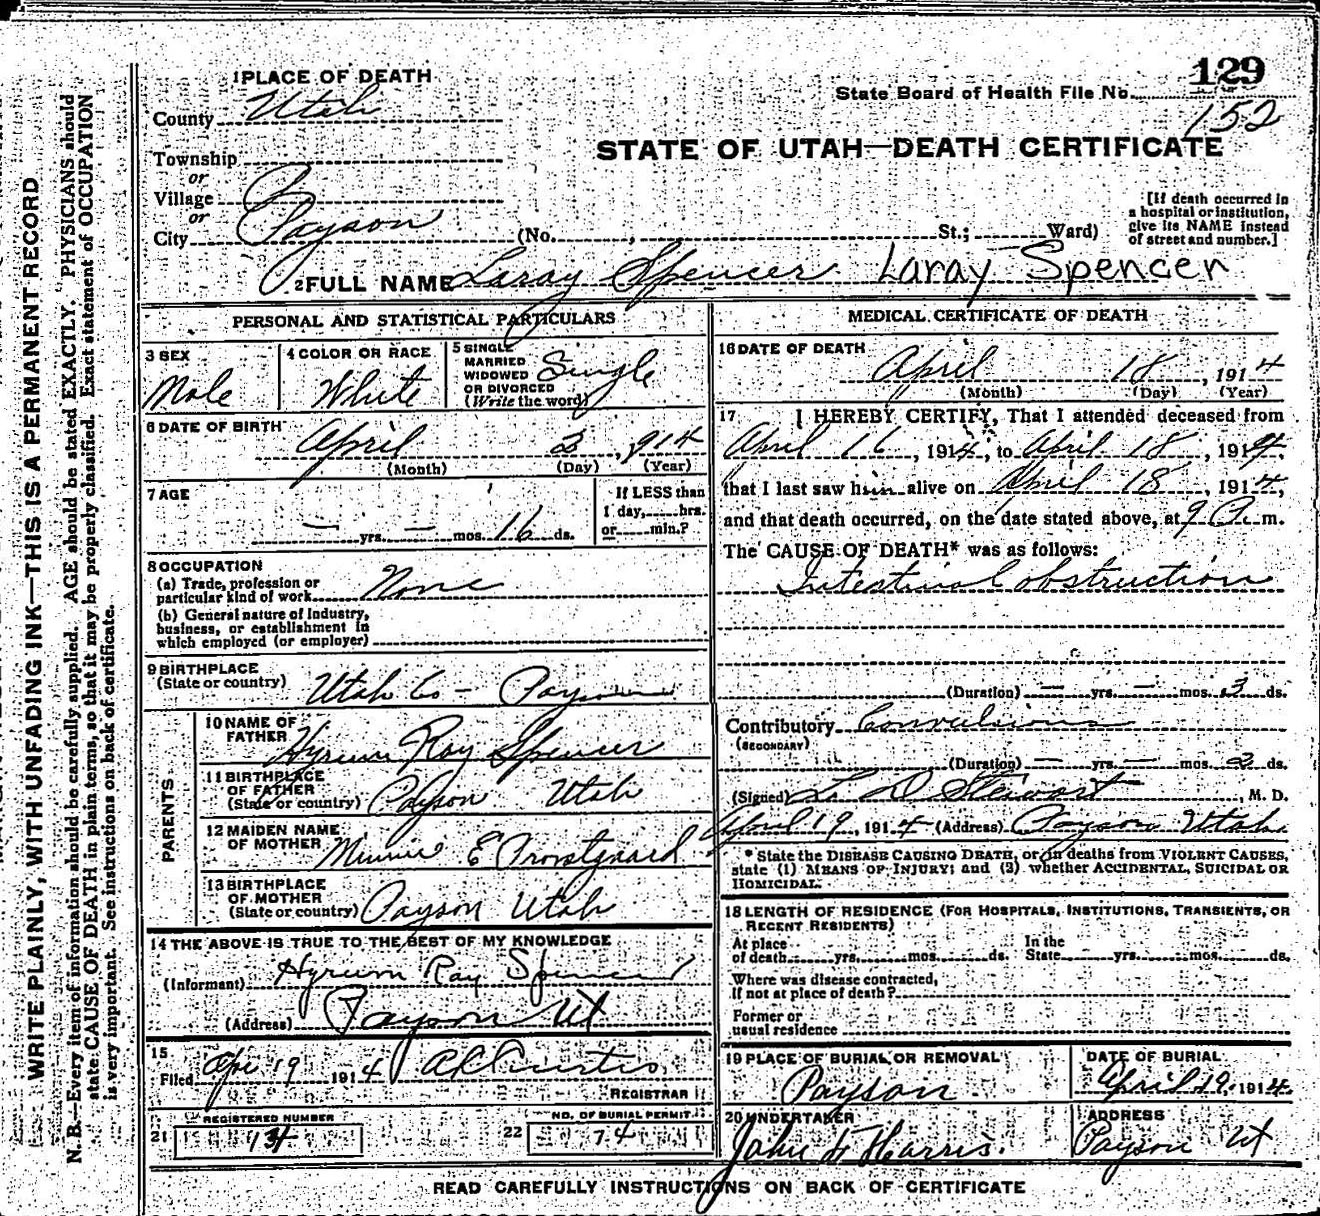 129
State Board of Health File No.
152
1 PLACE OF DEATH
County Utah
STATE OF UTAH—DEATH CERTIFICATE
Township
or
Village
or
City Payson (No. , St.; Ward)
[If death occurred in a hospital or institution, give its NAME instead of street and number.]
2 FULL NAME Laray Spencer Laray Spencer
PERSONAL AND STATISTICAL PARTICULARS
3 SEX
Male
4 COLOR OR RACE
White
5 SINGLE
MARRIED
WIDOWED
OR DIVORCED
(Write the word)
Single
6 DATE OF BIRTH
April 2, 914
(Month) (Day) (Year)
7 AGE
— yrs. — mos. 16 ds.
If LESS than
1 day, hrs.
or min.?
8 OCCUPATION
(a) Trade, profession or
particular kind of work None
(b) General nature of Industry,
business, or establishment in
which employed (or employer)
9 BIRTHPLACE
(State or country) Utah Co — Payson
PARENTS
10 NAME OF
FATHER Hyrum Ray Spencer
11 BIRTHPLACE
OF FATHER
(State or country) Payson Utah
12 MAIDEN NAME
OF MOTHER Minnie E
13 BIRTHPLACE
OF MOTHER
(State or country) Payson Utah
14 THE ABOVE IS TRUE TO THE BEST OF MY KNOWLEDGE
(Informant) Hyrum Ray Spencer
(Address) Payson Ut
15
Filed Apr 19 1914 Curtis
REGISTRAR
REGISTERED NUMBER
21 14
NO. OF BURIAL PERMIT
22 74
MEDICAL CERTIFICATE OF DEATH
16 DATE OF DEATH
April 18, 1914
(Month) (Day) (Year)
17 I HEREBY CERTIFY, That I attended deceased from
April 16, 1914, to April 18, 1914,
that I last saw him alive on April 18, 1914,
and that death occurred, on the date stated above, at 9 A. m.
The CAUSE OF DEATH* was as follows:
Intestinal obstruction
(Duration) — yrs. — mos. 3 ds.
Contributory Convulsions
(SECONDARY)
(Duration) — yrs. — mos. 2 ds.
(Signed) L. D. Stewart, M. D.
April 19, 1914 (Address) Payson Utah
* State the DISEASE CAUSING DEATH, or, in deaths from VIOLENT CAUSES,
state (1) MEANS OF INJURY; and (2) whether ACCIDENTAL, SUICIDAL OR
HOMICIDAL.
18 LENGTH OF RESIDENCE (FOR HOSPITALS, INSTITUTIONS, TRANSIENTS, OR
RECENT RESIDENTS)
At place of death yrs. mos. ds. In the State yrs. mos. ds.
Where was disease contracted,
If not at place of death?
Former or
usual residence
19 PLACE OF BURIAL OR REMOVAL
Payson
DATE OF BURIAL
April 19, 1914
20 UNDERTAKER
John Harris.
ADDRESS
Payson Ut
READ CAREFULLY INSTRUCTIONS ON BACK OF CERTIFICATE
WRITE PLAINLY, WITH UNFADING INK—THIS IS A PERMANENT RECORD
N. B.—Every item of information should be carefully supplied. AGE should be stated EXACTLY. PHYSICIANS should
state CAUSE OF DEATH in plain terms, so that it may be properly classified. Exact statement of OCCUPATION
is very important. See instructions on back of certificate.